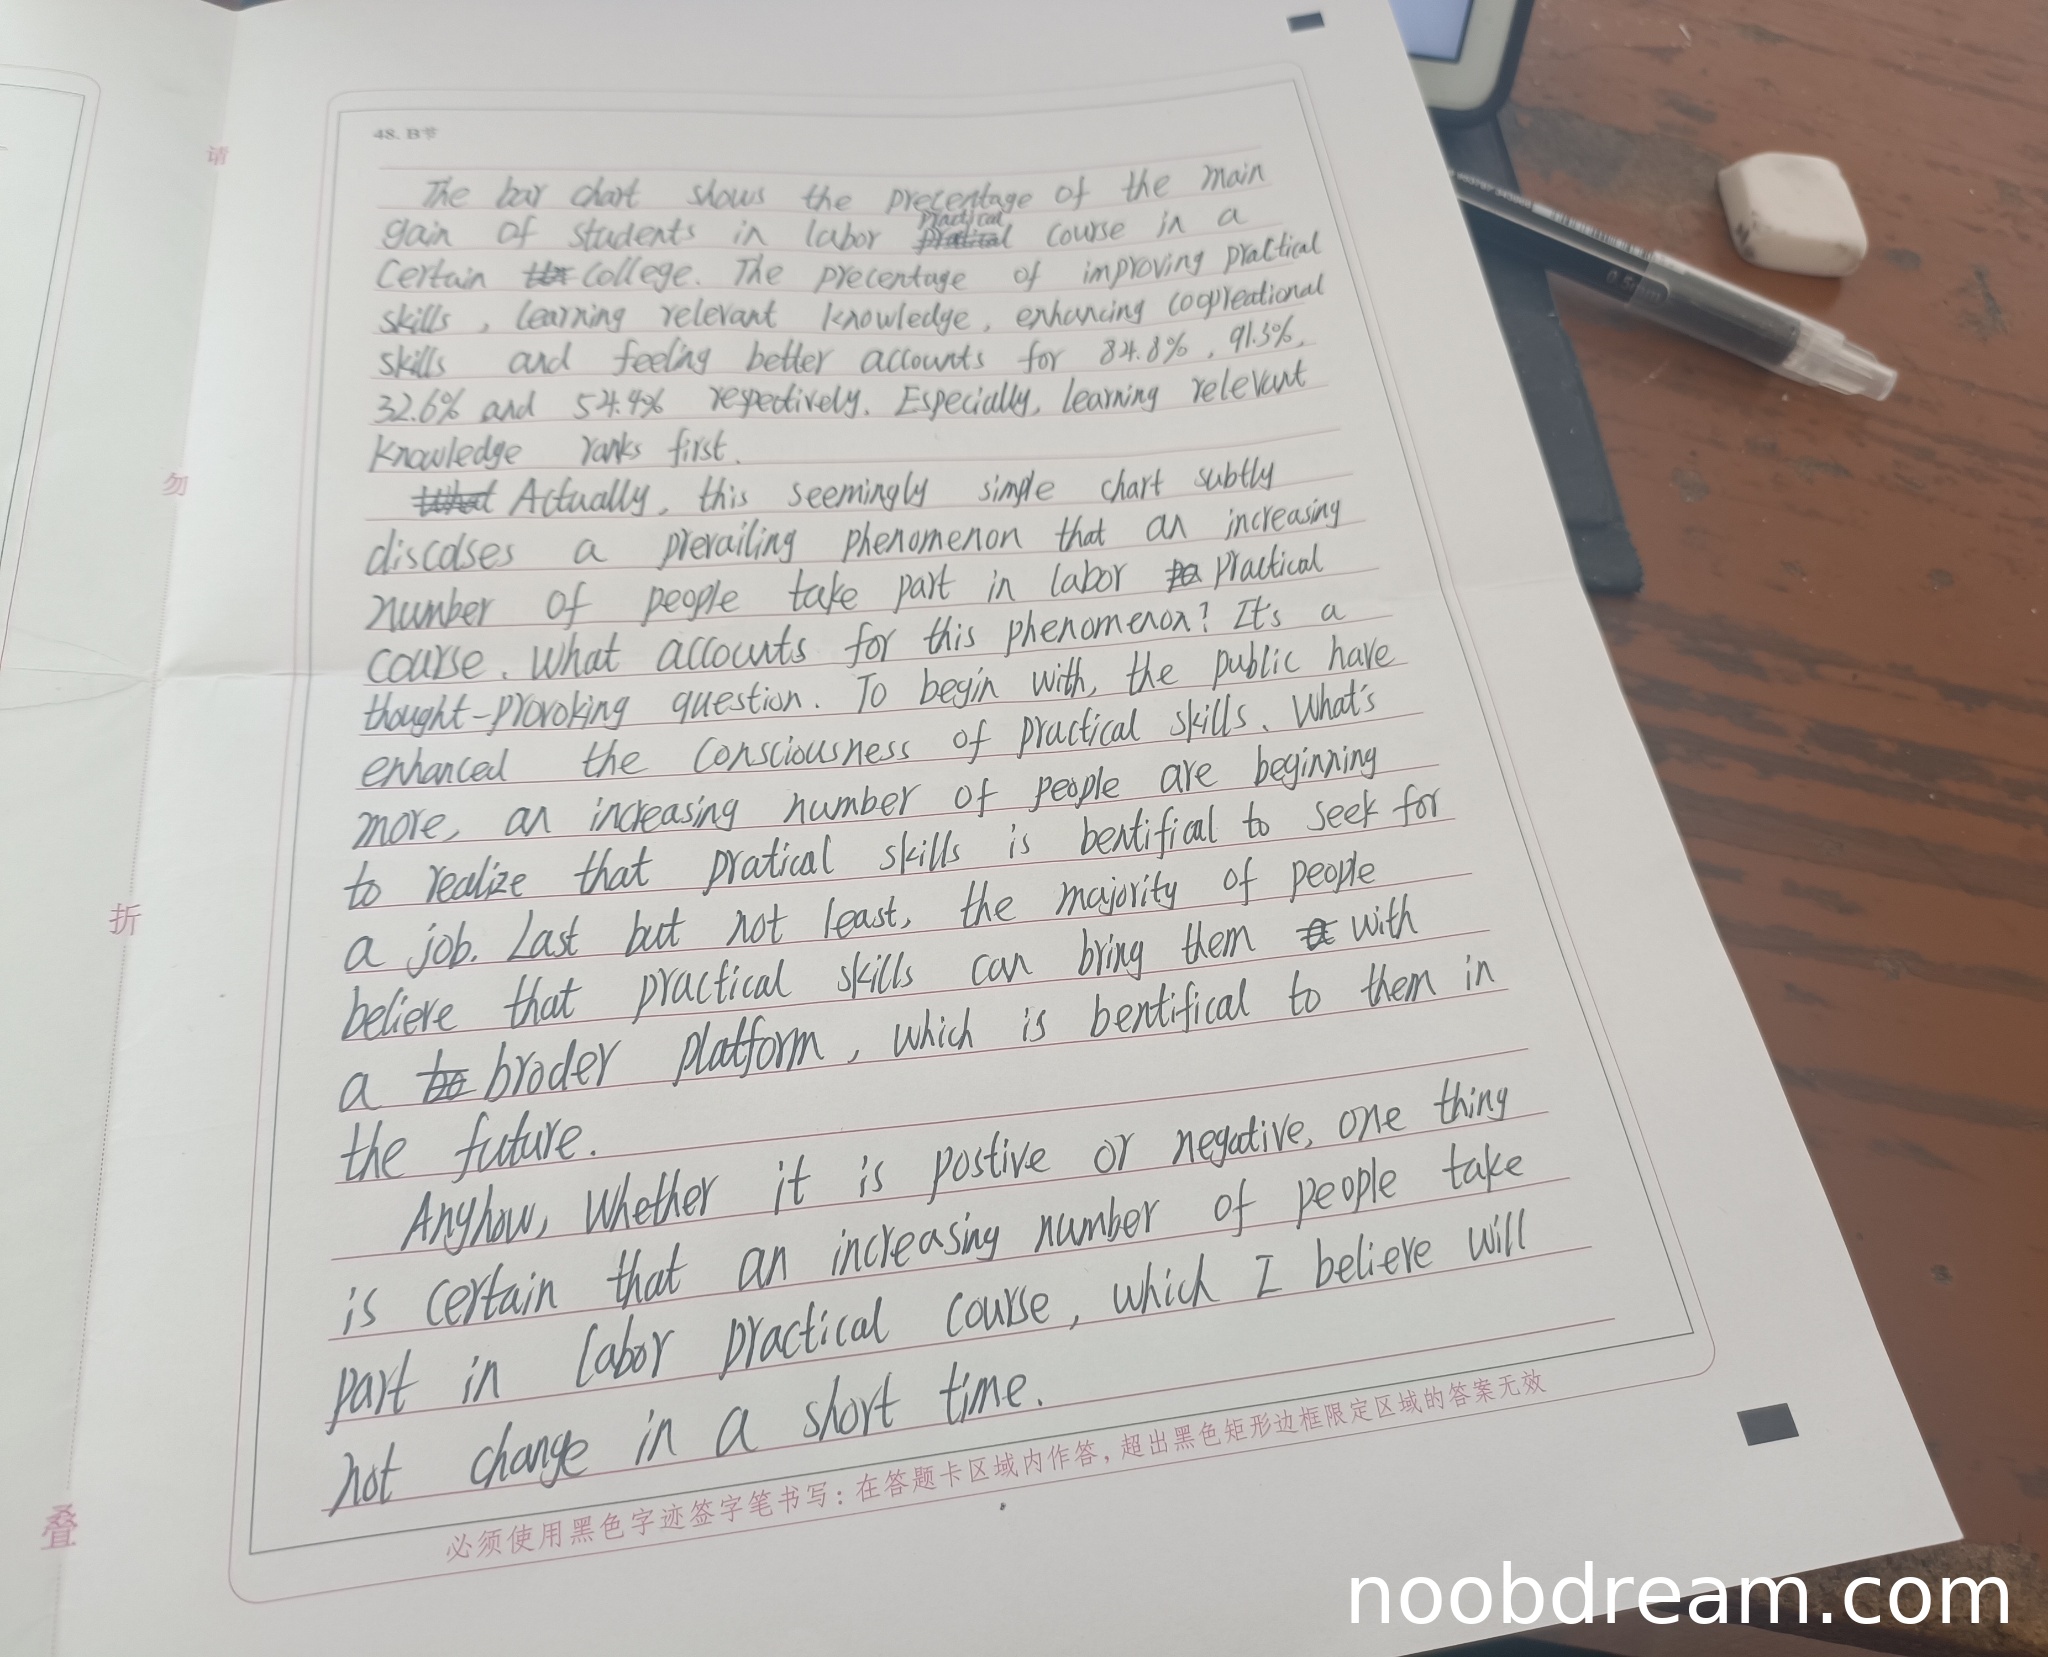 48. B节
The bar chart shows the precentage of the main
gain of students in labor practical course in a
certain college. The precentage of improving practical
skills, learning relevant knowledge, enhancing coopreational
skills and feeling better accounts for 84.8%, 91.3%,
32.6% and 54.4% respectively. Especially, learning relevant
knowledge ranks first.
Actually, this seemingly simple chart subtly
discolses a prevailing phenomenon that an increasing
number of people take part in labor practical
course. What accounts for this phenomenon? It's a
thought-provoking question. To begin with, the public have
enhanced the consciousness of practical skills. What's
more, an increasing number of people are beginning
to realize that pratical skills is bentifical to seek for
a job. Last but not least, the majority of people
believe that practical skills can bring them with
a broder platform, which is bentifical to them in
the future.
Anyhow, whether it is postive or negative, one thing
is certain that an increasing number of people take
part in labor practical course, which I believe will
not change in a short time.
必须使用黑色字迹签字笔书写：在答题卡区域内作答，超出黑色矩形边框限定区域的答案无效
请
勿
折
叠
noobdream.com